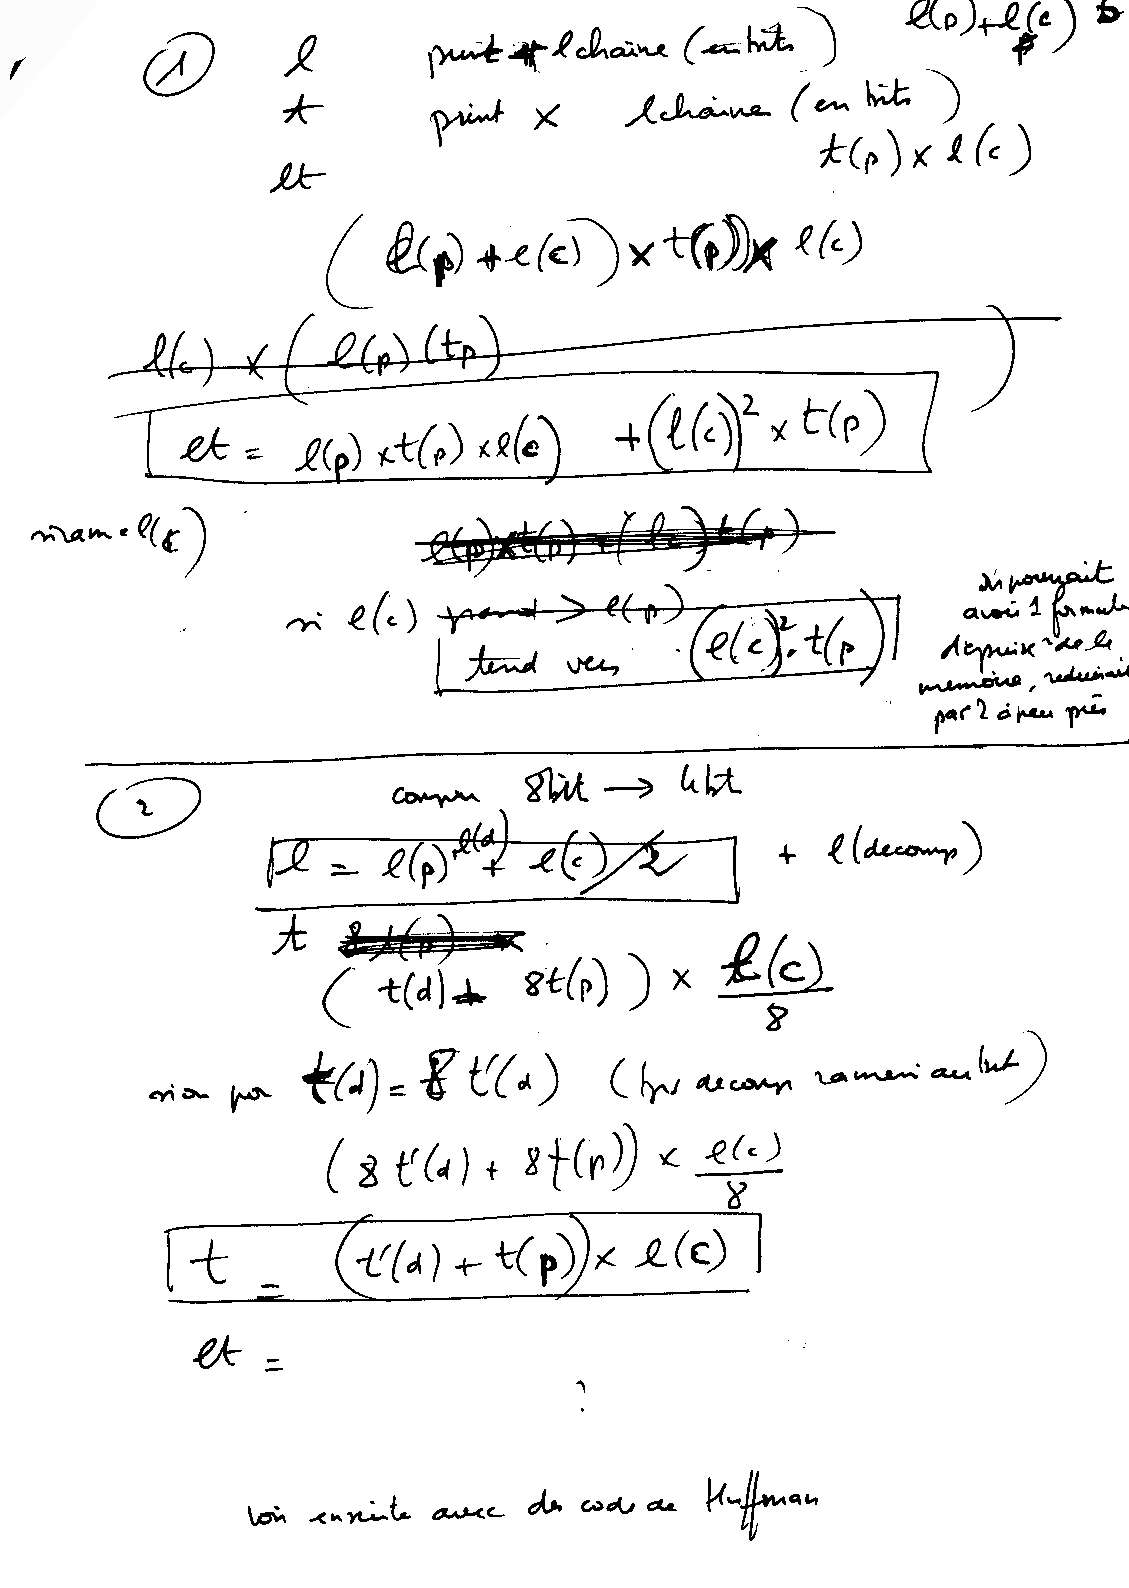 1
l print + l chaine (en bits) l(p)+l(c)
t print × l chaine (en bits)
t(p) × l(c)
lt
(l(p) + l(c)) × t(p) × l(c)
l(c) × ( l(p) (tp) )
lt = l(p) × t(p) × l(c) + (l(c))² × t(p)
si ram = l(c)
l(p) × t(p) + (lc) t(p)
si l(c) grand > l(p)
tend vers (l(c))² . t(p)
on pourrait
avoir 1 formule
de la
mémoire, réduirait
par 2 à peu près
2
8bit → 4bt
l = l(p) + l(d) + l(c)/2 + l(decomp)
t 8 t(p) ×
( t(d) + 8t(p) ) × l(c)/8
si on t(d) = 8 t'(d) (tps decomp ramené au bit)
(8 t'(d) + 8t(p)) × l(c)/8
t = (t'(d) + t(p)) × l(c)
lt =
?
voir ensuite avec des code de Huffman